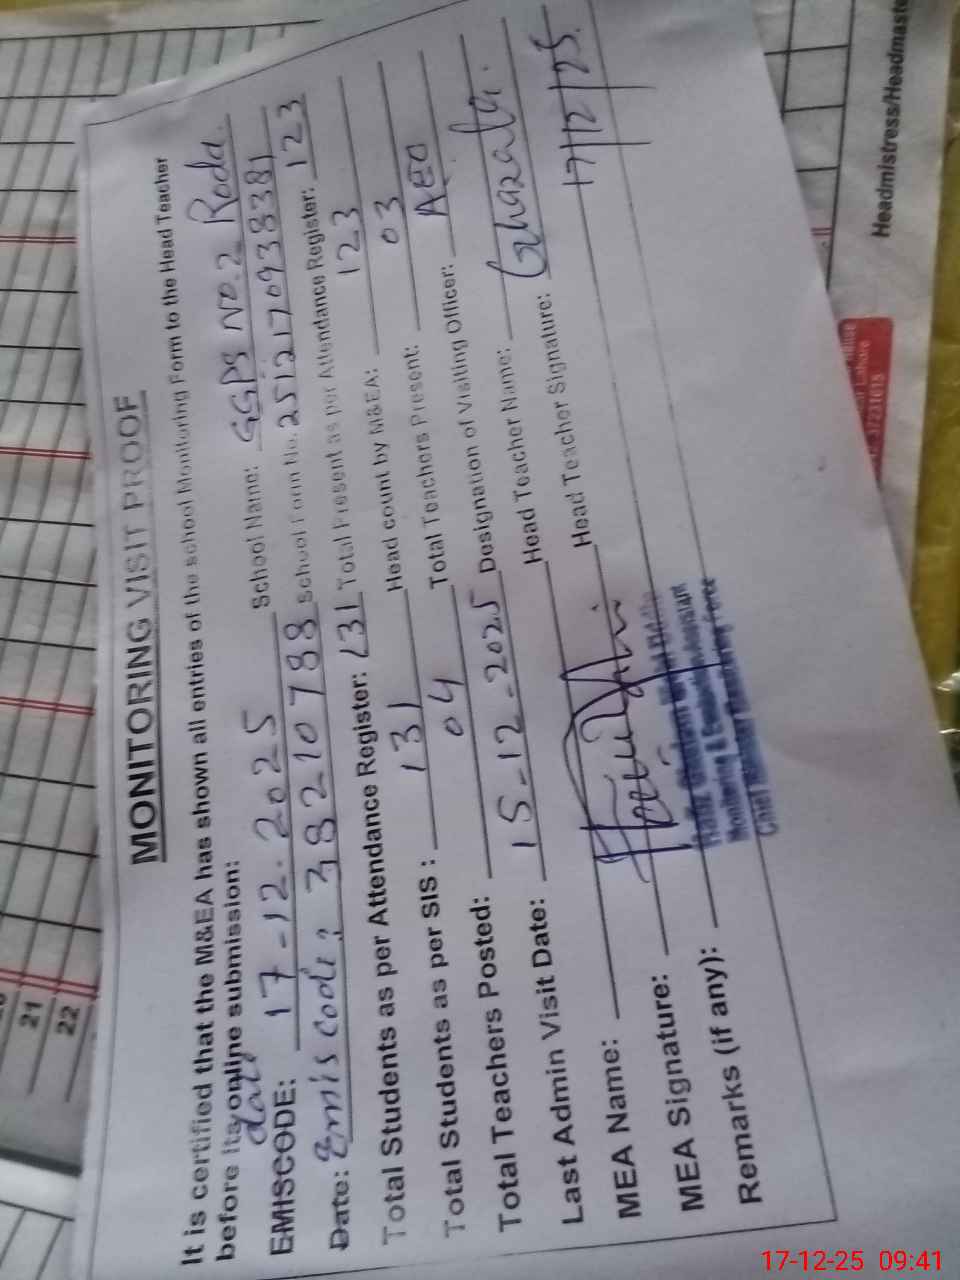 MONITORING VISIT PROOF
It is certified that the M&EA has shown all entries of the school Monitoring Form to the Head Teacher
before its online submission:
date
EMISCODE: 17-12-2025 School Name: GGPS NO.2 Roda.
Date: Emis code: 38210788 School Form No. 2512170938381
Total Students as per Attendance Register: 131 Total Present as per Attendance Register: 123
Total Students as per SIS : 131 Head count by M&EA: 123
Total Teachers Posted: 04 Total Teachers Present: 03
Last Admin Visit Date: 15-12-2025 Designation of Visiting Officer: AEO
MEA Name: Head Teacher Name: Ghazala.
MEA Signature: Head Teacher Signature: 17/12/25.
Remarks (if any):
Monitoring & Evaluation Assistant
21
22
Headmistress/Headmaste
Lahore
37231615
17-12-25 09:41